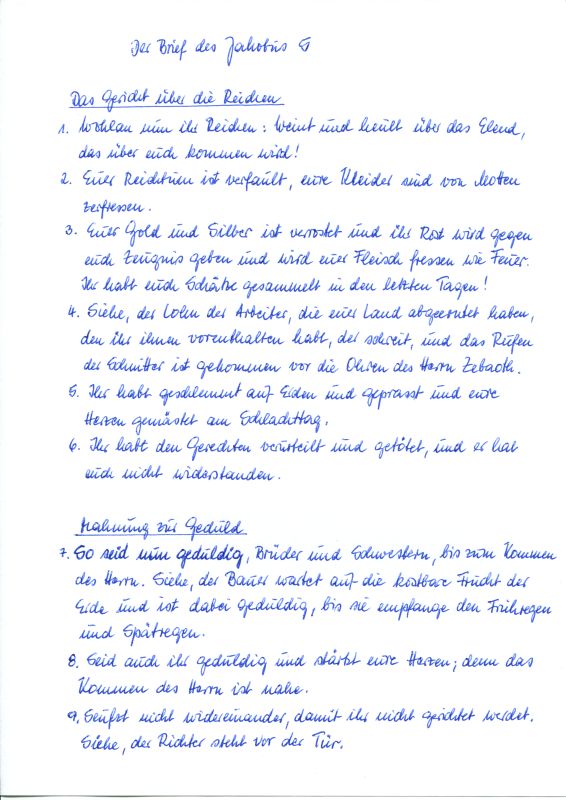 Der Brief des Jakobus 5
Das Gericht über die Reichen
1. Wohlan nun ihr Reichen: Weint und heult über das Elend,
das über euch kommen wird!
2. Euer Reichtum ist verfault, eure Kleider sind von Motten
zerfressen.
3. Euer Gold und Silber ist verrostet und ihr Rost wird gegen
euch Zeugnis geben und wird euer Fleisch fressen wie Feuer.
Ihr habt euch Schätze gesammelt in den letzten Tagen!
4. Siehe, der Lohn der Arbeiter, die euer Land abgeerntet haben,
den ihr ihnen vorenthalten habt, der schreit, und das Rufen
der Schnitter ist gekommen vor die Ohren des Herrn Zebaoth.
5. Ihr habt geschlemmt auf Erden und geprasst und eure
Herzen gemästet am Schlachttag.
6. Ihr habt den Gerechten verurteilt und getötet, und er hat
euch nicht widerstanden.
Mahnung zur Geduld
7. So seid nun geduldig, Brüder und Schwestern, bis zum Kommen
des Herrn. Siehe, der Bauer wartet auf die kostbare Frucht der
Erde und ist dabei geduldig, bis sie empfange den Frühregen
und Spätregen.
8. Seid auch ihr geduldig und stärkt eure Herzen; denn das
Kommen des Herrn ist nahe.
9. Seufzt nicht widereinander, damit ihr nicht gerichtet werdet.
Siehe, der Richter steht vor der Tür.